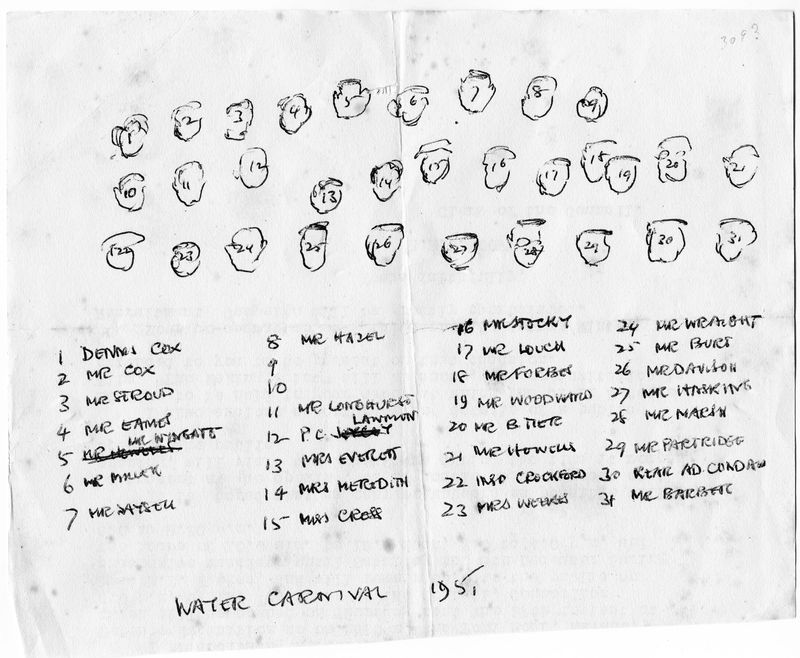 309?
1 2 3 4 5 6 7 8 9
10 11 12 13 14 15 16 17 18 19 20 21
22 23 24 25 26 27 28 29 30 31
1 DENNIS COX
2 MR COX
3 MR STROUD
4 MR EAMES
5 MR WINGATE
6 MR MILLER
7 MR
8 MR HAZEL
9
10
11 MR LONGHURST
12 P.C. LAWMON
13 MRS EVERETT
14 MRS MEREDITH
15 MISS CROSS
16 MR STOCKY
17 MR LOUCH
18 MR FORBES
19 MR WOODWARD
20 MR BITER
21 MR HOWELLS
22 INSP CROCKFORD
23 MRS WEEKS
24 MR WRAIGHT
25 MR BURT
26 MR DAVISON
27 MR HASKING
28 MR MARSH
29 MR PARTRIDGE
30 REAR AD CONDAN
31 MR BARBER
WATER CARNIVAL 1951